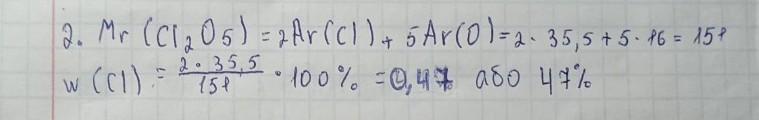 2. Mr (Cl2O5) = 2Ar(Cl) + 5Ar(O) = 2 · 35,5 + 5 · 16 = 151
w (Cl) = 2 · 35,5 / 151 · 100% = 0,47 або 47%